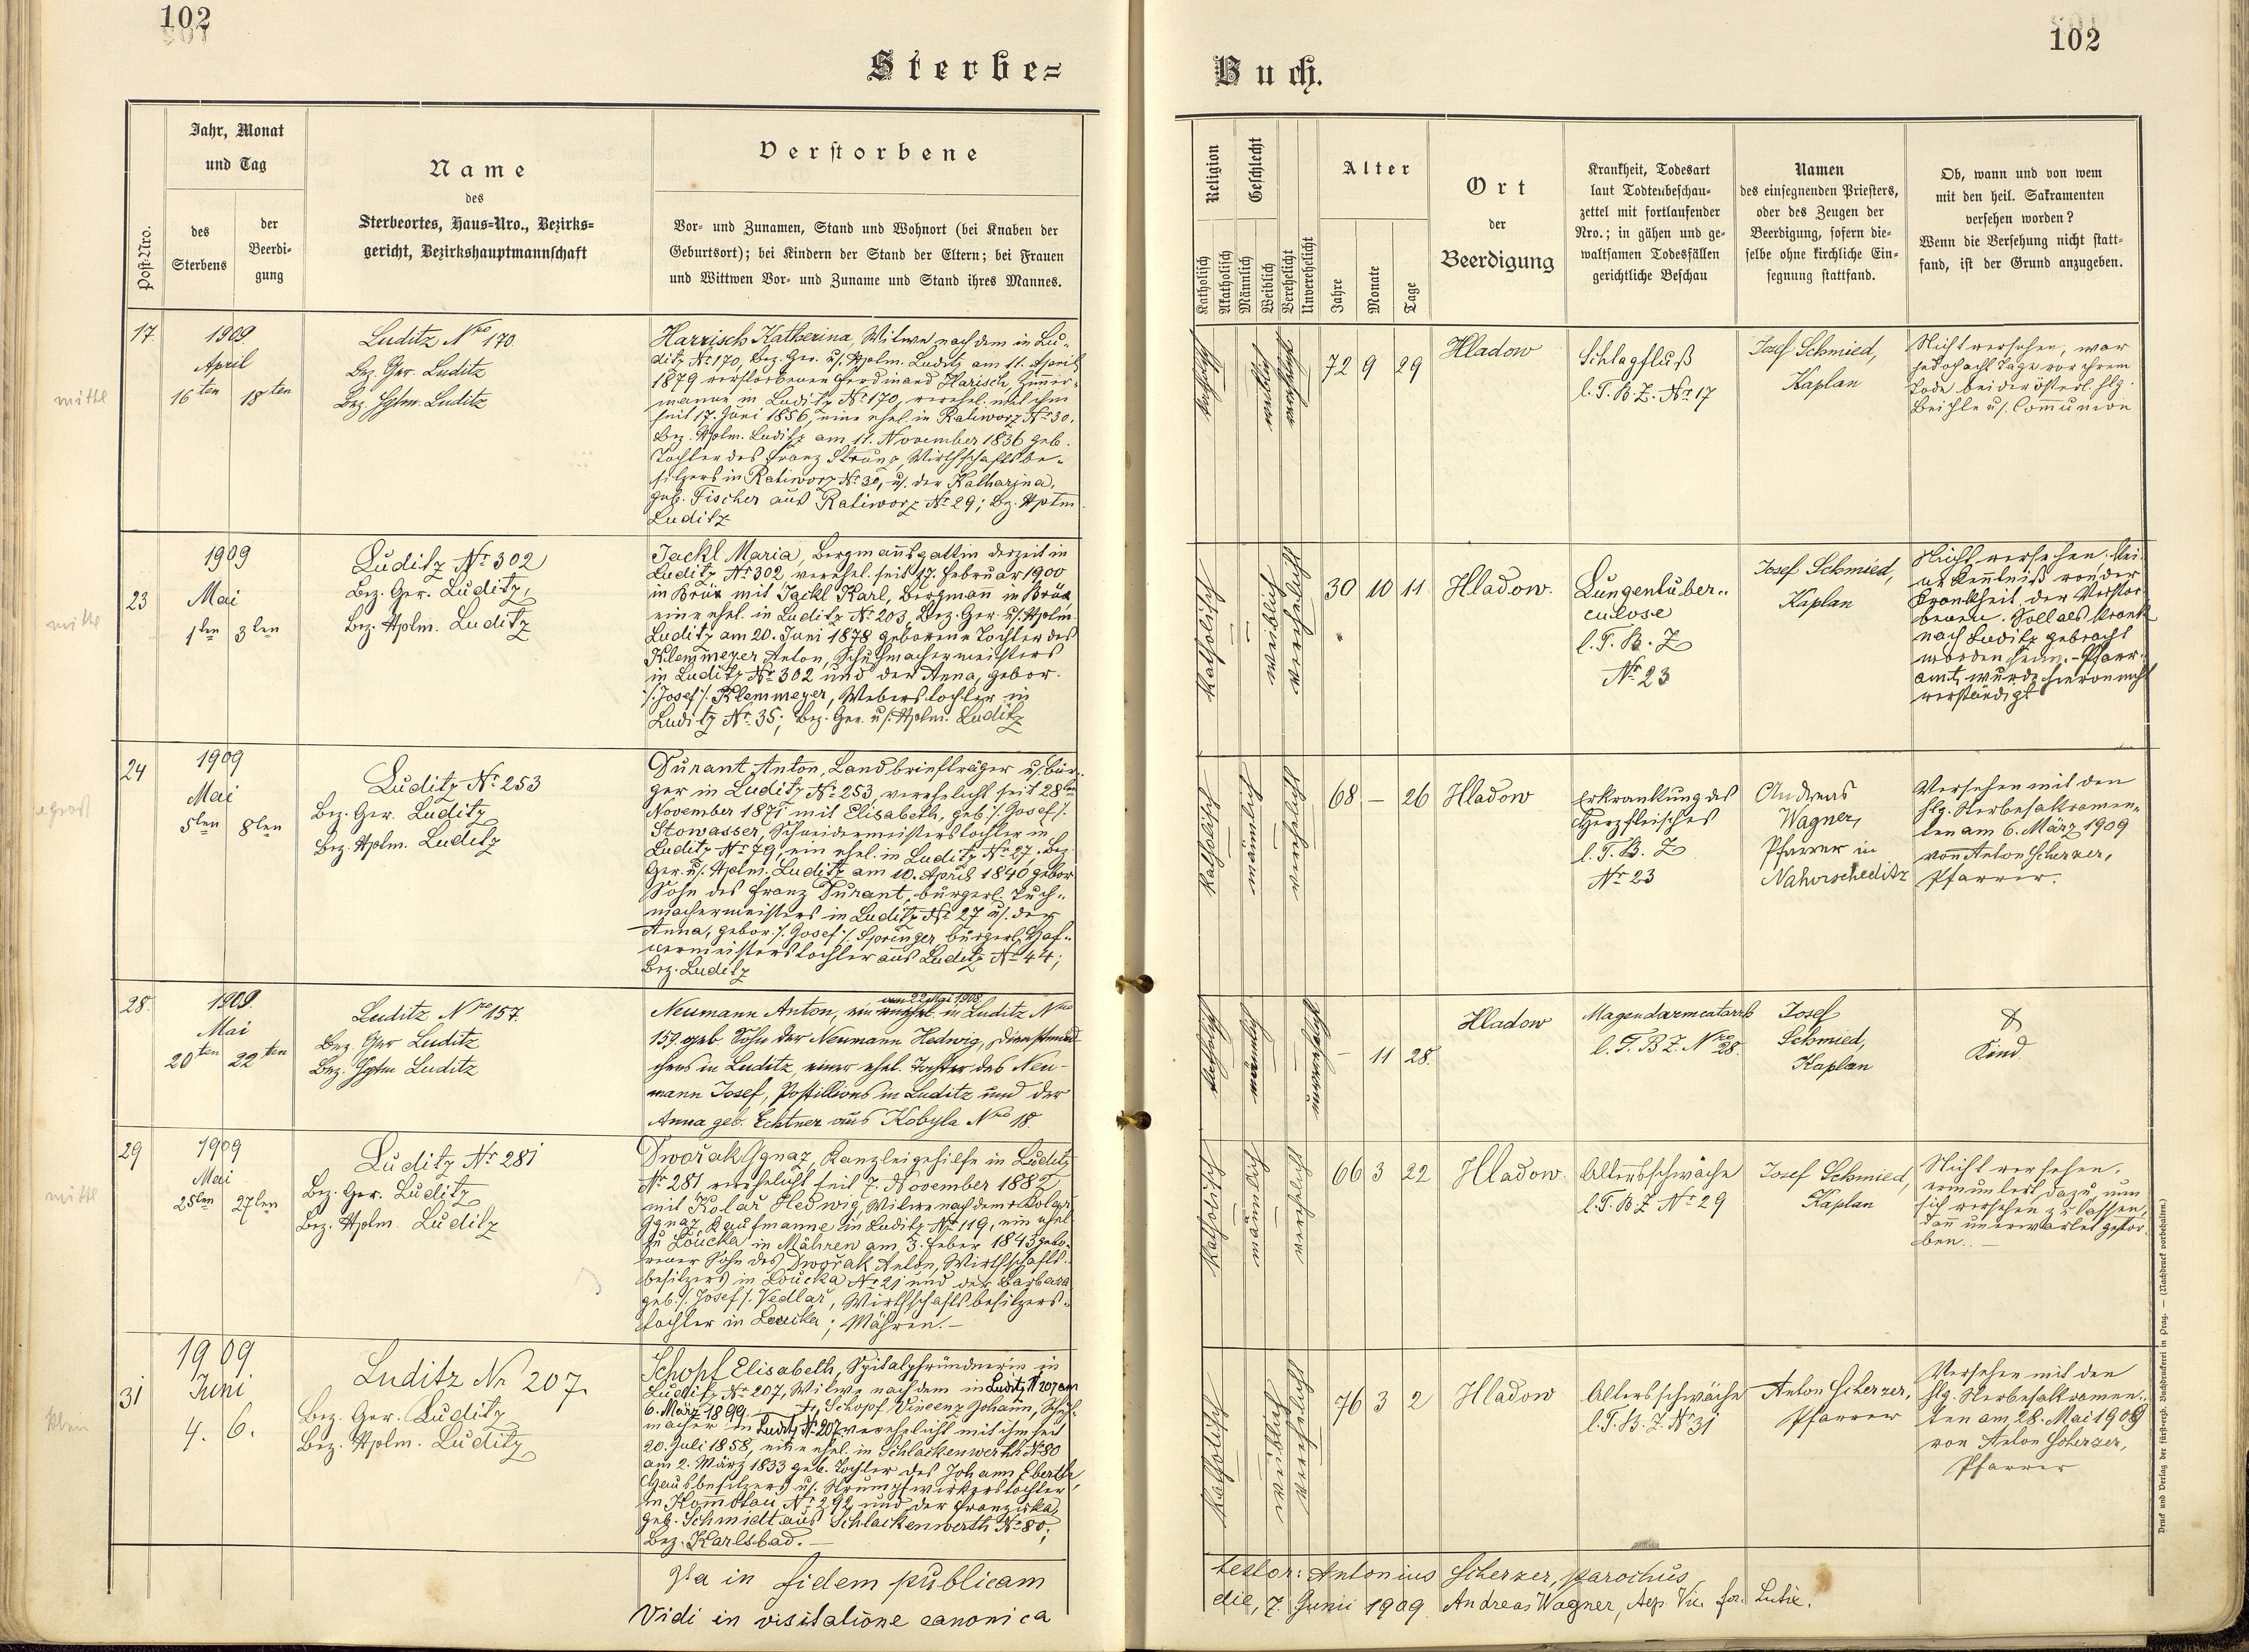 102
102
Sterbe=
Buch.
Post-Nro.
Jahr, Monat
und Tag
des
Sterbens
der
Beerdi-
gung
Name
des
Sterbeortes, Haus-Nro., Bezirks-
gericht, Bezirkshauptmannschaft
Verstorbene
Vor- und Zunamen, Stand und Wohnort (bei Knaben der
Geburtsort); bei Kindern der Stand der Eltern; bei Frauen
und Wittwen Vor- und Zuname und Stand ihres Mannes.
Religion
Katholisch
Akatholisch
Geschlecht
Männlich
Weiblich
Verehelicht
Unverehelicht
Alter
Jahre
Monate
Tage
Ort
der
Beerdigung
Krankheit, Todesart
laut Todtenbeschau-
zettel mit fortlaufender
Nro.; in gähen und ge-
waltsamen Todesfällen
gerichtliche Beschau
Namen
des einsegnenden Priesters,
oder des Zeugen der
Beerdigung, sofern die-
selbe ohne kirchliche Ein-
segnung stattfand.
Ob, wann und von wem
mit den heil. Sakramenten
versehen worden?
Wenn die Versehung nicht statt-
fand, ist der Grund anzugeben.
17
1909
April
16ten 18ten
Luditz Nro 170
Bez. Ger. Luditz
Bez. Hptm. Luditz
Harrisch Katherina, Witwe nach dem in Lu-
ditz No 170, Bez. Ger. u. Hptm. Luditz am 11. April
1879 verstorbenen Ferdinand Harisch, Zimmer-
manne in Luditz No 170, verehel. mit ihm
seit 17. Juni 1856, eine ehel. in Ratiworz No 30.
Bez. Hptm. Luditz am 17. November 1836 geb.
Tochter des Franz Strunz, Wirthschaftsbe-
sitzers in Ratiworz No 30, u. der Katharina,
geb. Fischer aus Ratiworz No 29; Bez. Hptm
Luditz
katholisch
weiblich
verehelicht
72 9 29
Hladow
Schlagfluß
l. T. B. Z. No 17
Josef Schmied,
Kaplan
Nicht versehen, war
jedoch acht Tage vor ihrem
Tode bei der österl. hlg.
Beichte u. Communion
23
1909
Mai
1ten 3ten
Luditz Nr 302
Bez. Ger. Luditz,
Bez. Hptm. Luditz
Jackl Maria, Bergmannsgattin derzeit in
Luditz Nr 302, verehel. seit 17. Februar 1900
in Brüx mit Jackl Karl, Bergmann in Brüx,
eine ehel. in Luditz No 203, Bez. Ger. u. Hptm.
Luditz am 20. Juni 1878 geborene Tochter des
Klemmeyer Anton, Schuhmachermeisters
in Luditz No 302 und der Anna, gebor.
/: Josef :/ Klemmeyer, Weberstochter in
Luditz No 35; Bez. Ger. u. Hptm. Luditz
katholisch
weiblich
verehelicht
30 10 11
Hladow.
Lungentuber-
culose
l. T. B. Z
No 23
Josef Schmied,
Kaplan
Nicht versehen, kei-
ne Kenntniß von der
Krankheit der Verstor-
benen. Soll als krank
nach Luditz gebracht
worden sein. - Pfarr-
amt wurde hievon nicht
verständigt
24
1909
Mai
5ten 8ten
Luditz Nr 253
Bez. Ger. Luditz
Bez. Hptm. Luditz
Durant Anton, Landbriefträger u. Bür-
ger in Luditz No 253, verehelicht seit 28ten
November 1871 mit Elisabeth, geb. /: Josef :/
Stowasser, Schneidermeisterstochter in
Luditz No 79, ein ehel. in Luditz No 27, Bez.
Ger. u. Hptm. Luditz am 10. April 1840 gebor.
Sohn des Franz Durant, bürgerl. Tuch-
machermeisters in Luditz No 27 u. der
Anna, gebor. /: Josef :/ Springer bürgerl. Haf-
nermeisterstochter aus Luditz No 44;
Bez. Luditz
katholisch
männlich
verehelicht
68 - 26
Hladow
Erkrankung des
Herzfleisches
l. T. B. Z
No 23
Andreas
Wagner,
Pfarrer in
Nahorscheditz
Versehen mit den
hlg. Sterbesakramen-
ten am 6. März 1909
von Anton Scherzer,
Pfarrer.
28.
1909
Mai
20ten 22ten
Luditz Nro 157.
Bez. Ger Luditz
Bez. Hptm Luditz
am 22. Mai 1908
Neumann Anton, ein unehel. in Luditz Nro
157 geb. Sohn der Neumann Hedwig, Dienstmäd-
chens in Luditz, einer ehel. Tochter des Neu-
mann Josef, Postillions in Luditz und der
Anna geb. Echtner aus Kobyla Nro 18.
katholisch
männlich
unverehelicht
- 11 28.
Hladow
Magendarmcatarrh
l. T. B Z. Nro 28.
Josef
Schmied,
Kaplan
Kind
29
1909
Mai
25ten 27ten
Luditz Nr 281
Bez. Ger. Luditz
Bez. Hptm. Luditz
Dwořak Ignaz, Kanzleigehilfe in Luditz
Nr 281 verehelicht seit 7. November 1882
mit Kolař Hedwig, Witwe nach dem + Kolař
Ignaz, Kaufmanne in Luditz No 119, ein ehel.
zu Loucka in Mähren am 3. Feber 1843 gebo-
rener Sohn des Dwořak Anton, Wirthschafts-
besitzers in Loucka No 21 und der Barbara
geb. /: Josef :/ Vedlař, Wirthschaftsbesitzers-
tochter in Loucka; Mähren. -
katholisch
männlich
verehelicht
66 3 22
Hladow
Altersschwäche
l. T. B Z No 29
Josef Schmied,
Kaplan
Nicht versehen,
ermuntert dazu, nun
sich versehen zu lassen,
dann unerwartet gestor-
ben. -
31
1909
Juni
4. 6.
Luditz Nr 207.
Bez. Ger. Luditz
Bez. Hptm. Luditz
Schopf Elisabeth, Spitalpfründnerin in
Luditz No 207, Witwe nach dem in Luditz No 207 am
6. März 1899 +, Schopf Vincenz Johann, Schuh-
macher in Luditz No 207, verehelicht mit ihm seit
20. Juli 1858, eine ehel. in Schlackenwerth No 80
am 2. März 1833 geb. Tochter des Johann Eberth,
Hausbesitzers u. Strumpfwirkerstochter
in Kommotau No 292 und der Franziska
geb. Schmidt aus Schlackenwerth No 80;
Bez. Karlsbad. -
katholisch
weiblich
verehelicht
76 3 2
Hladow
Altersschwäche
l. T. B. Z. No 31
Anton Scherzer,
Pfarrer
Versehen mit den
hlg. Sterbesakramen-
ten am 28. Mai 1909
von Anton Scherzer,
Pfarrer
Ita in fidem publicam
testor: Antonius Scherzer, parochus
Vidi in visitatione canonica
die, 7. Junii 1909. Andreas Wagner,
Druck und Verlag der fürsterzb. Buchdruckerei in Prag. — (Nachdruck vorbehalten.)